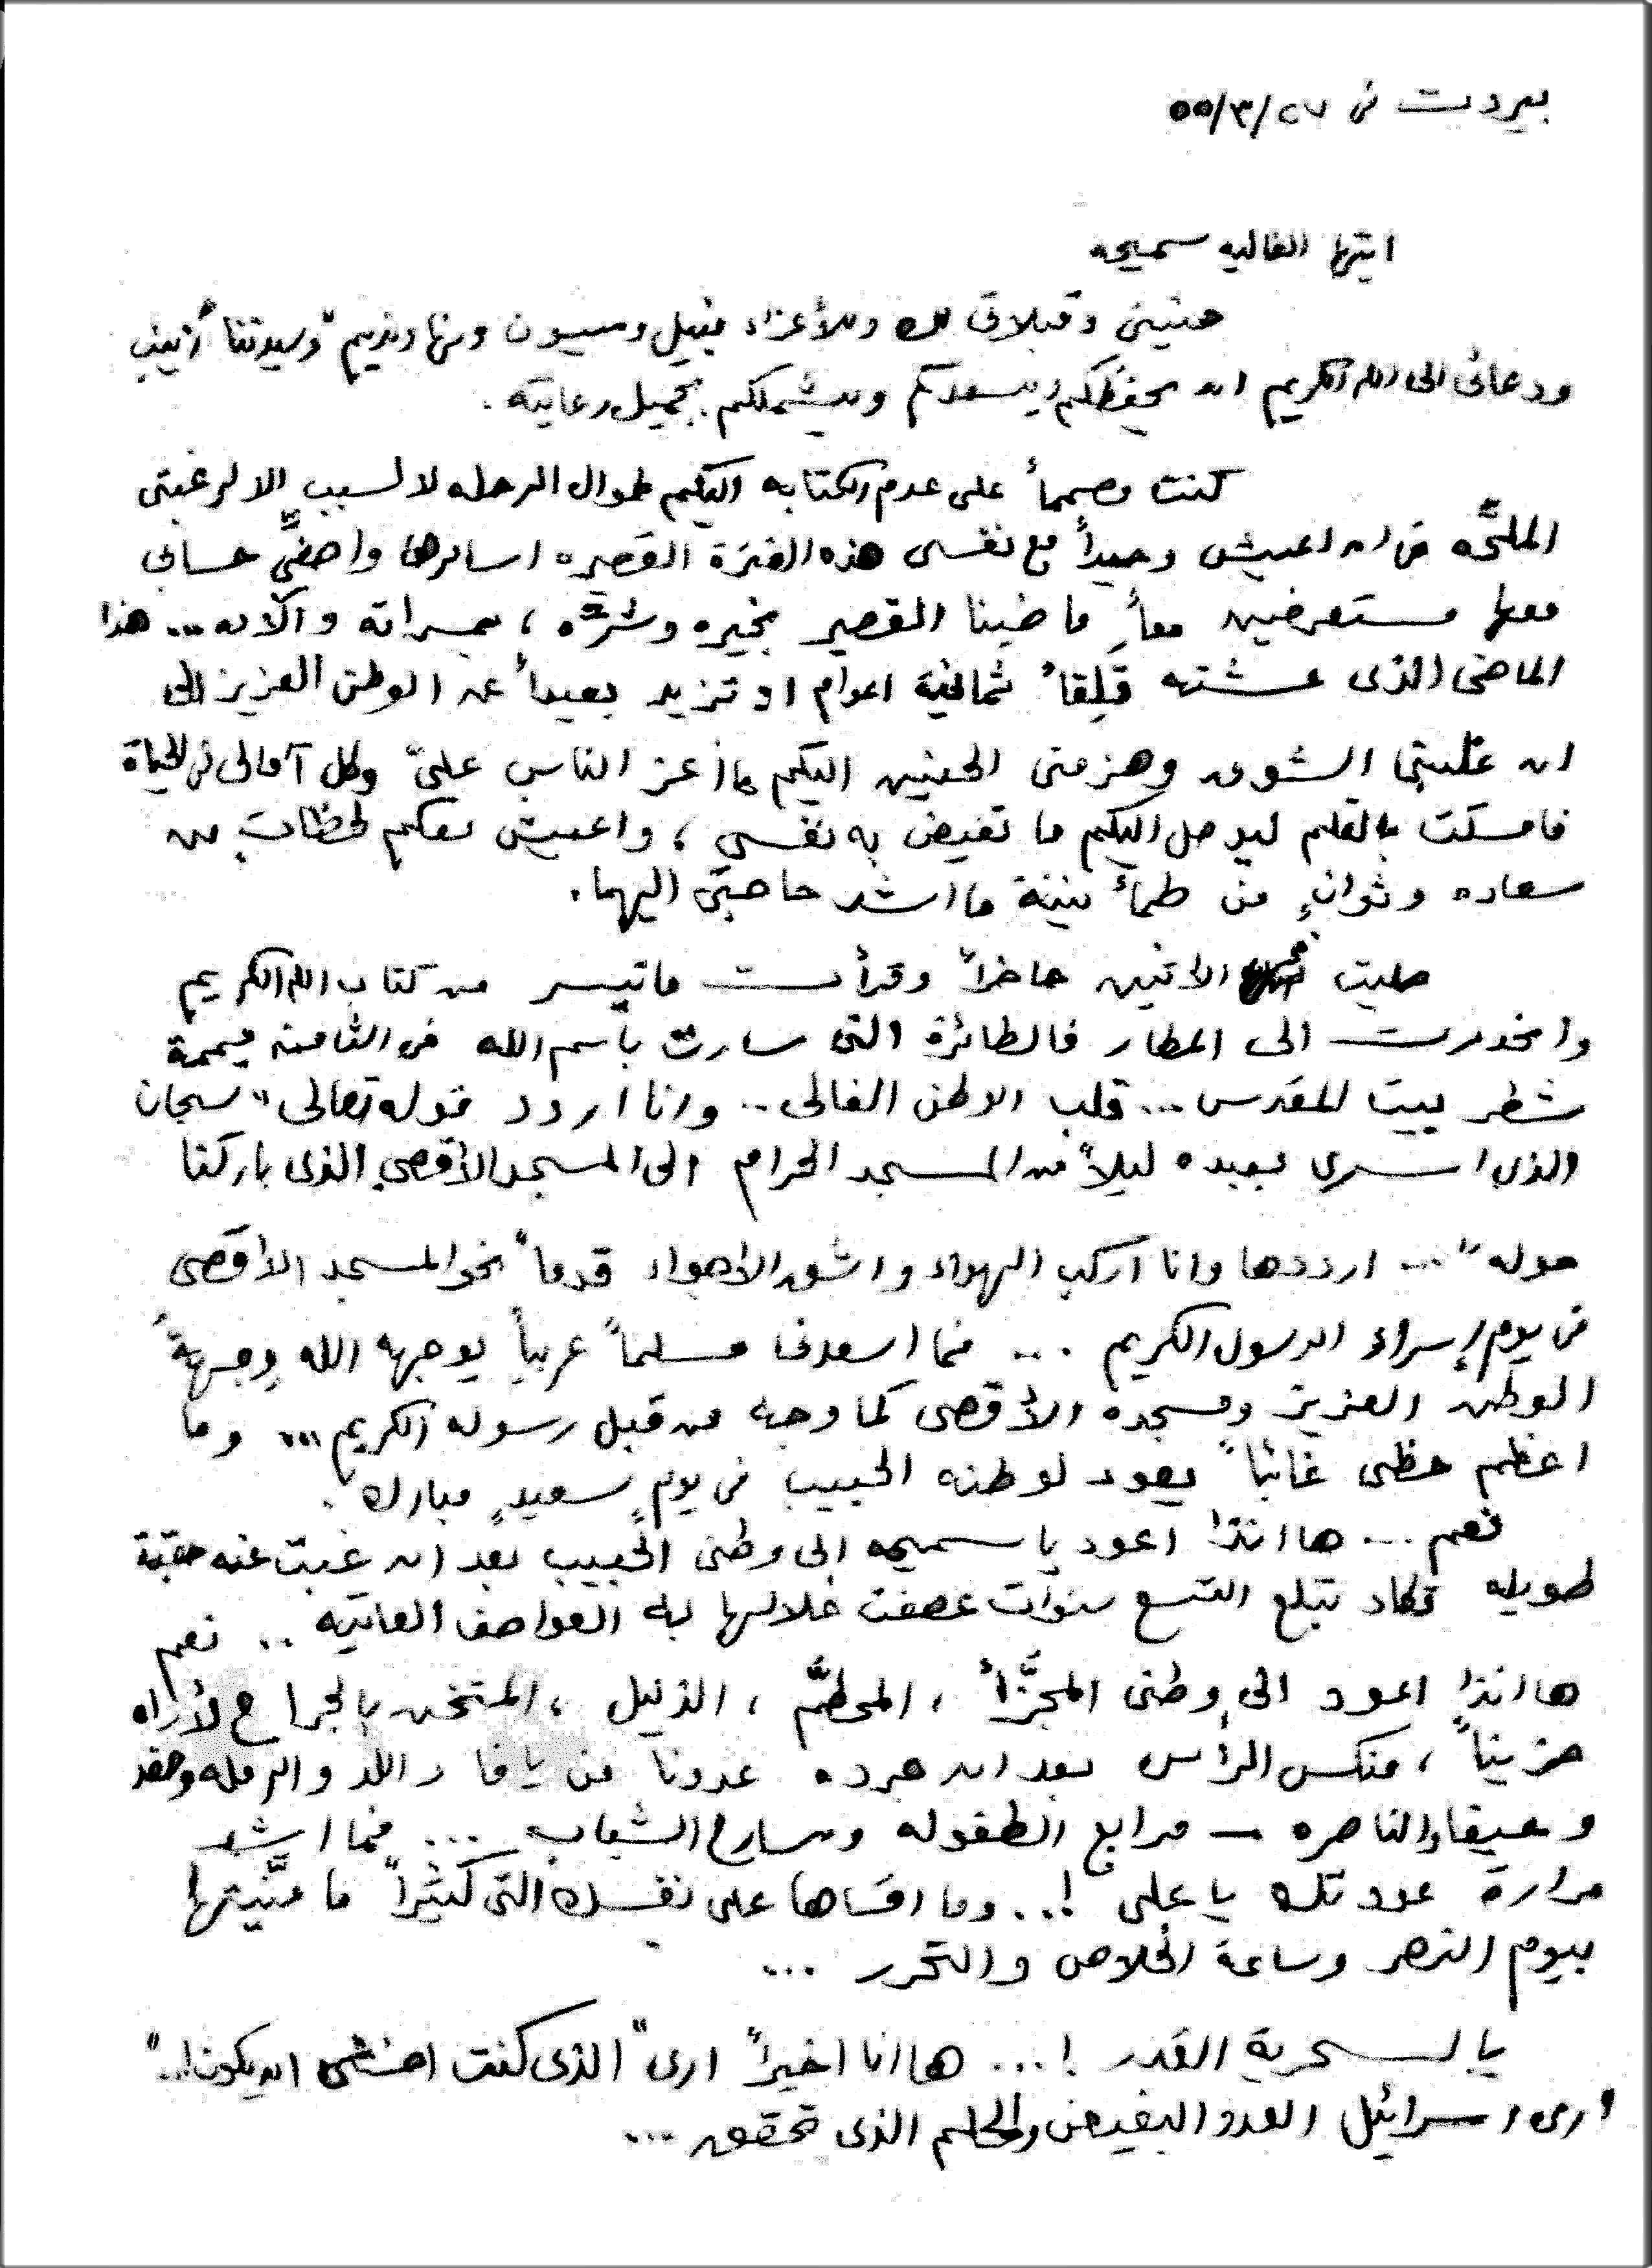 بيروت في ٢٧/٣/٥٥
ايتها الغاليه سميحه
حنيني وقبلاتي لك وللأعزاء نبيل وميسون ومها ونديم "وسيدتنا"
ودعائي الى الله الكريم ان يحفظكم ويسعدكم ويشملكم بجميل رعايته .
كنت مصمماً على عدم الكتابه اليكم طوال الرحله لا لسبب الا لرغبتي
الملحَّه في ان اعيش وحيداً مع نفسي هذه الفترة القصيره اسائرها واصفيِّ حسابي
معها مستعرضين معاً ماضينا القصير بخيره وشرِّه ، بمسراته وآلامه ... هذا
الماضي الذي عشته قَلِقاً ثمانية اعوام او تزيد بعيداً عن الوطن العزيز الى
ان غلبني الشوق وهزمني الحنين اليكم يا أعز الناس عليّ وكل آمالي في الحياة
فامسكت بالقلم ليوصل اليكم ما تفيض به نفسي ، واعيش معكم لحظات من
سعاده وثوانٍ من طمأنينة ما اشد حاجتي اليهما .
صليت الاثنين حاضراً وقرأت ما تيسر من كتاب الله الكريم
وانحدرت الى المطار فالطائرة التي سارت باسم الله في الثامنه ميممة
شطر بيت المقدس ... قلب الوطن الغالي .. وانا اردد قوله تعالى "سبحان
الذي اسرى بعبده ليلاً من المسجد الحرام الى المسجد الأقصى الذي باركنا
حوله" ... ارددها وانا اركب الهواء واشق الأجواء قدماً نحو المسجد الاقصى
في يوم إسراء الرسول الكريم ... فما اسعدني مسلماً عربياً يوجهه الله وجهةَ
الوطن العزيز ومسجده الأقصى كما وجه من قبل رسوله الكريم ... وما
اعظم حظي غائباً يعود لوطنه الحبيب في يومٍ سعيدٍ مبارك .
نعم ... ها انذا اعود يا سميحه الى وطني الحبيب بعد ان غبت عنه حقبة
طويله تكاد تبلغ التسع سنوات عصفت خلالها به العواصف العاتيه .. نعم
ها انذا اعود الى وطني المجزَّأ ، المحطَّم ، الذليل ، المثخن بالجراح لأراه
حزيناً ، منكس الرأس بعد ان جرده عدونا من يافا واللد والرمله وصفد
وحيفا والناصره — مرابع الطفوله ومسارح الشباب ... فما اشد
مرارة عودتك يا علي ! ... وما اقساها على نفسك التي كثيراً ما منَّيتها
بيوم النصر وساعة الخلاص والتحرر ...
يا لسخرية القدر ! ... ها انا اخيراً ارى "الذي كنت اخشى ان يكونا .."
ارى اسرائيل العدو البغيض والحلم الذي تحقق ...